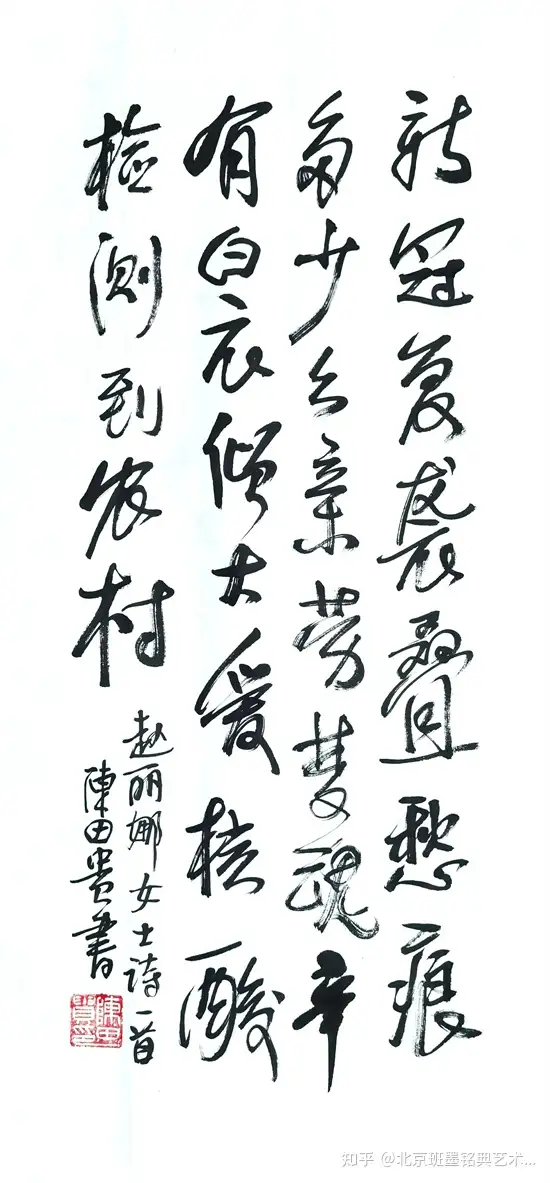 新冠复袭叠愁痕
多少乡亲劳梦魂幸
有白衣倾大爱核酸
检测到农村
赵丽娜女士诗一首
陳田贵書
陳田貴印
知乎 @北京班墨铭典艺术...